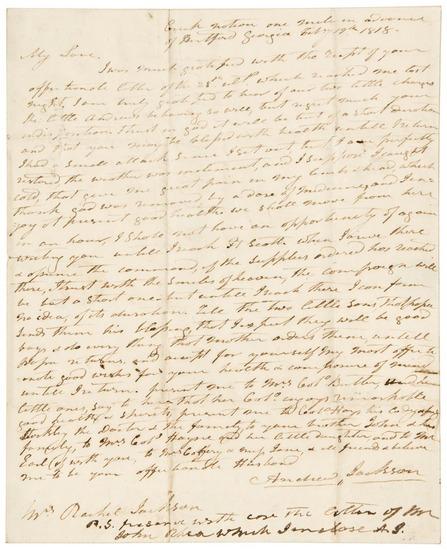 Creek nation one mile in advance
of Hartford Georgia Feby 19th 1818.
My Love,
I was much gratifyed with the recpt of your
affectionate letter of the 25th which reached me last
night, I am truly gratefull to hear of our two little charges
the little Andrews behaving so well, but regret much your
indisposition, I trust in god it will be but of a short duration
and that you may be blessed with health untill I return
I had a small attack since I set out but I am perfectly
restored the weather was inclement and I suppose I caught
cold, that gave me great pain in my and which
thank god was removed by a dose of medicine, and I en-
joy at present good health, we shall move from here
in an hour, I shall not have an opportunity of again
writing you untill I reach Ft Scott, when I arive there
& assume the command, if the supplies ordered has reached
there, I trust with the smiles of heaven, the campaign will
be but a short one but untill I reach there I can form
no idea, of its duration tell the two little sons that papa
sends them his blessing that I expect they will be good
boys & do every thing that mother orders them, untill
papa returns, and accept for yourself my most affecti-
onate good wishes for your health & composure of mind
untill I return present me to Mrs Col Butler, and her
little ones, say to her that her Col enjoys remarkable
good health & spirits, present me to Col Hays his Lady &
the Doctor & the family to your brother John & his
family, to Mrs Col Hayne and her little daughter and to Mr
Earl (if with you, to Mr & Jane, & all friends & believe
me to be your affectionate Husband
Andrew Jackson
Mrs Rachel Jackson
P.S. preserve with care the letter of Mr
John Rhea which I enclose A.J.